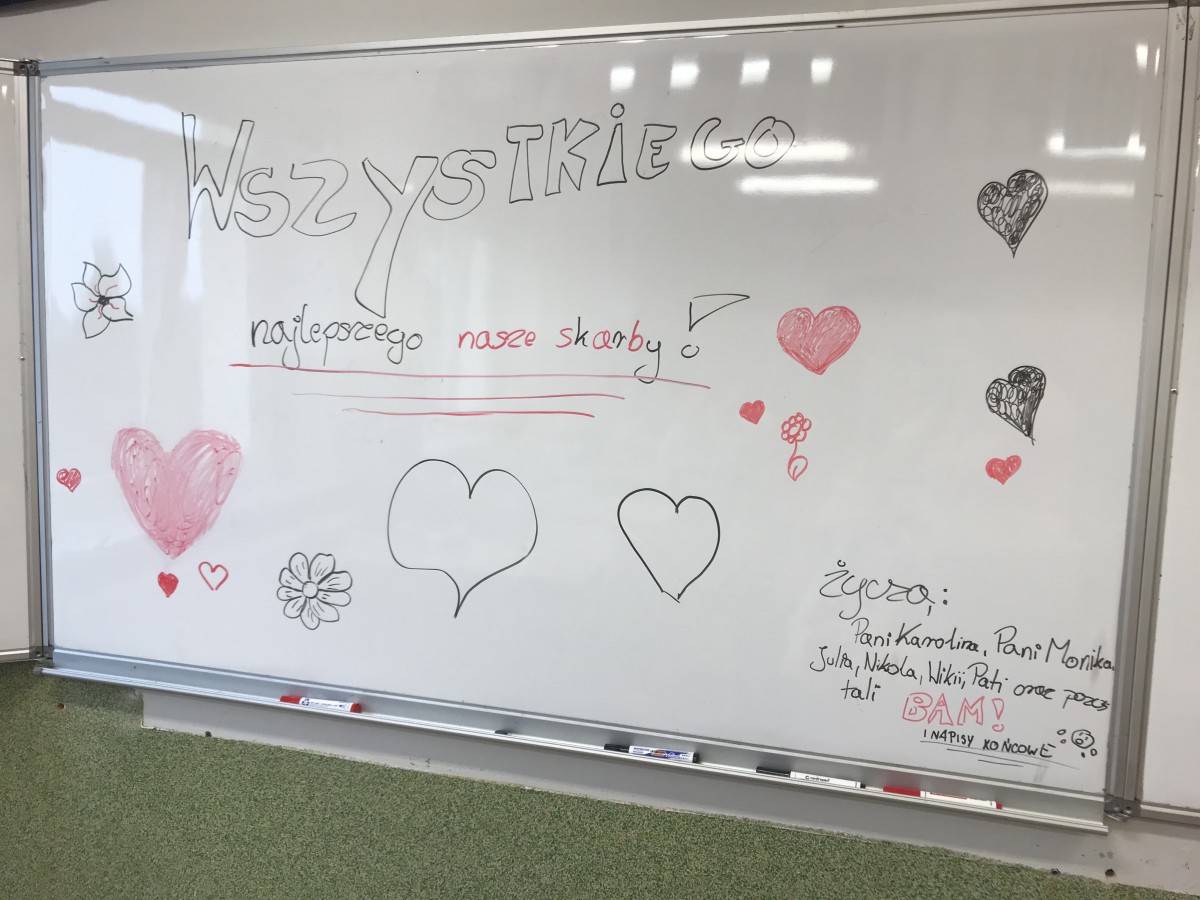 WSZYSTKIEGO
najlepszego nasze skarby!
życzą:
Pani Karolina, Pani Monika
Julia, Nikola, Wikii, Pati oraz pozos
tali BAM!
I NAPISY KOŃCOWE